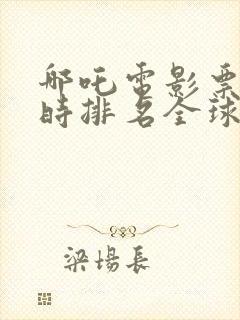 哪吒電影票
時排名全球
梁場長